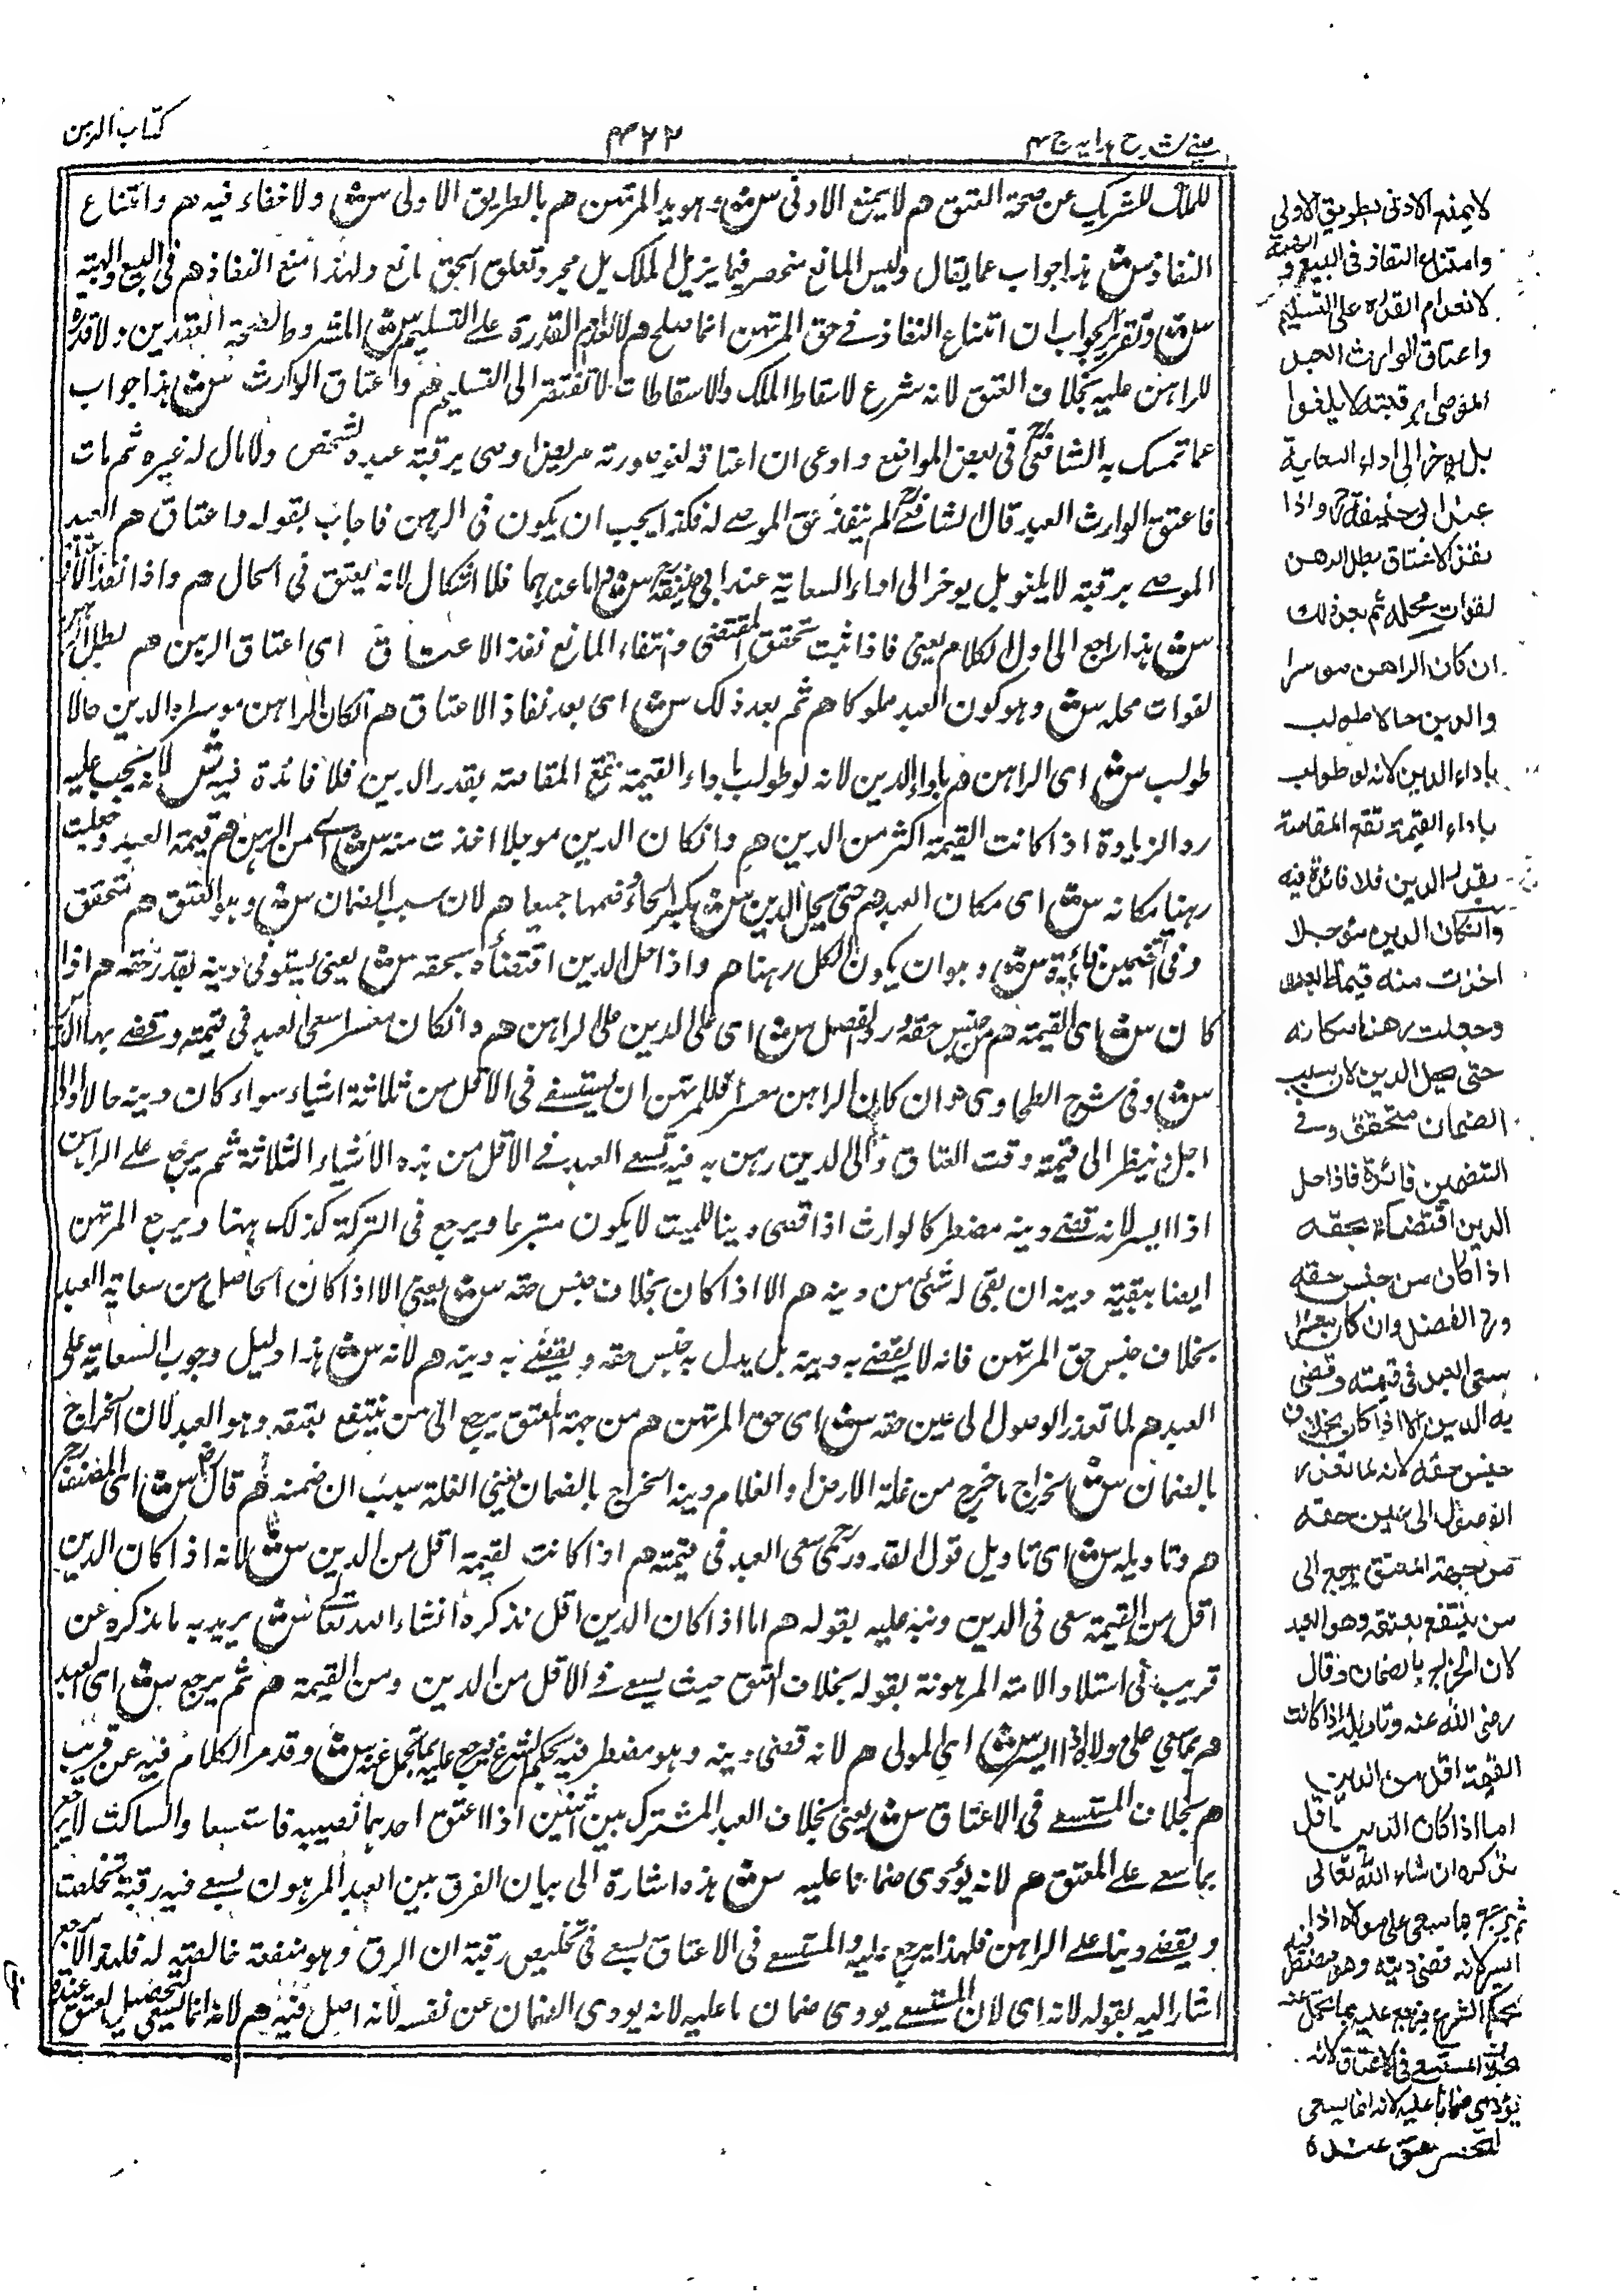 عینی شرح ہدایہ ج ۴
۴۲۲
کتاب الرہن
للملک للشریک عن صحۃ العتق هم لا یمنع الادنی سش وہو ید المرتہن هم بالطریق الاولی سش ولا خفاء فیہ هم وامتناع
النفاذ سش ہذا جواب عما یقال ولیس المانع منحصر فیما یزیل الملک بل مجرد تعلق الحق مانع ولہذا منع النفاذ هم فی البیع والہبۃ
سش وتقریر الجواب ان امتناع النفاذ فے حق المرتہن انما صلح هم لانعدام القدرۃ علے التسلیم سش المشروط لصحۃ العقدین ولا قدرۃ
للراہن علیہ بخلاف العتق لانہ شرع لاسقاط الملک والاسقاطات لا تفتقر الی التسلیم هم واعتاق الوارث سش ہذا جواب
عما تمسک بہ الشافعی فی بعض المواضع وادعی ان اعتاقہ لغو صورتہ مریض اوصی برقبۃ عبدہ لشخص ولا مال لہ غیرہ ثم مات
فاعتق الوارث العبد قال الشافعے لم ینفذ حق الموصے لہ فکذا یجب ان یکون فی الرہن فاجاب بقولہ واعتاق هم العبد
الموصے برقبتہ لا یلغو بل یوخر الی اداء السعایۃ عند ابی حنیفۃ سش واما عندہما فلا اشکال لانہ یعتق فی الحال هم واذا نفذ الاعتاق
سش ہذا راجع الی اول الکلام یعنی فاذا ثبت تحقق المقتضی وانتفاء المانع نفذ الاعتاق ای اعتاق الرہن هم بطل الرہن
لفوات محلہ سش وہو کون العبد مملوکا هم ثم بعد ذلک سش ای بعد نفاذ الاعتاق هم انکان الراہن موسرا والدین حالا
طولب سش ای الراہن هم باداء الدین لانہ لو طولب باداء القیمۃ تقع المقاصۃ بقدر الدین فلا فائدۃ فیہ سش لانہ یجب علیہ
رد الزیادۃ اذا کانت القیمۃ اکثر من الدین هم وانکان الدین موجلا اخذت منہ سش اے من الراہن هم قیمۃ العبد وجعلت
رہنا مکانہ سش ای مکان العبد هم حتی یحل الدین سش بکسر الحاء وضمہا جمیعا هم لان سبب الضمان سش وہو العتق هم متحقق
وفی التضمین فائدۃ سش وہو ان یکون الکل رہنا هم واذا حل الدین اقتضاہ بحقہ سش یعنی یستوفی دینہ بقدر حقہ هم اذا
کان سش ای القیمۃ هم من جنس حقہ ورد الفضل سش ای علی الدین علی الراہن هم وانکان معسرا سعی العبد فی قیمتہ وقضے بہا الدین
سش وفی شرح الطحاوی هو ان کان الراہن معسرا فللمرتہن ان یستسعے فی الاقل من ثلاثۃ اشیاء سواء کان دینہ حالا او الی
اجل وینظر الی قیمتہ وقت العتاق والی الدین رہن بہ فیہ یسعے العبد فے الاقل من ہذہ الاشیاء الثلاثۃ ثم یرجع علے الراہن
اذا ایسر لانہ قضے دینہ مضطر کالوارث اذا قضی دینا للمیت لا یکون متبرعا ویرجع فی الترکۃ کذلک ہہنا ویرجع المرتہن
ایضا ببقیۃ دینہ ان بقی لہ شئ من دینہ هم الا اذا کان بخلاف جنس حقہ سش یعنی الا اذا کان الحاصل من سعایۃ العبد
بخلاف جنس حق المرتہن فانہ لا یقضے بہ دینہ بل یبدل بہ جنس حقہ ویقضے بہ دینہ هم لانہ سش ہذا دلیل وجوب السعایۃ علی
العبد هم لما تعذر الوصول الی عین حقہ سش ای حق المرتہن هم من جہۃ المعتق یرجع الی من ینتفع بعتقہ وہو العبد لان الخراج
بالضمان سش الخراج ما خرج من غلۃ الارض او الغلام ومنہ الخراج بالضمان یعنی الغلۃ بسبب ان ضمنہ هم قال سش ای المصنف
هم وتاویلہ سش ای تاویل قول القدوری سعی العبد فی قیمتہ هم اذا کانت القیمۃ اقل من الدین سش لانہ اذا کان الدین
اقل من القیمۃ سعی فی الدین ونبہ علیہ بقولہ هم اما اذا کان الدین اقل نذکرہ انشاء اللہ تعالے سش یرید بہ ما یذکرہ عن
قریب فی استیلاد الامۃ المرہونۃ بقولہ بخلاف العتق حیث یسعے فی الاقل من الدین ومن القیمۃ هم ثم یرجع سش ای العبد
هم بما سعی علی مولاہ اذا ایسر سش ای المولی هم لانہ قضی دینہ وہو مضطر فیہ بحکم الشرع فیرجع علیہ بما تحمل عنہ سش وقد مر الکلام فیہ عن قریب
هم بخلاف المستسعے فی الاعتاق سش یعنی بخلاف العبد المشترک بین اثنین اذا اعتق احدہما نصیبہ فاستسعا والساکت لا یرجع
بما سعے علے المعتق هم لانہ یؤدی ضمانا علیہ سش ہذہ اشارۃ الی بیان الفرق بین العبد المرہون یسعے فیہ رقبۃ تخلصت
ویقضے دینا علے الراہن فلہذا یرجع علیہ والمستسعے فی الاعتاق یسعے فی تخلیص رقبۃ ان الرق وہو منفعۃ خالصۃ لہ فلہذا لا یرجع
اشار الیہ بقولہ لانہ ای لان المستسعے یودی ضمان ما علیہ لانہ یودی الضمان عن نفسہ لانہ اصل فیہ هم لانہ انما یسعی لتحصیل العتق عندہ
لا یمنعہ الادنی بطریق الاولی
وامتناع النفاذ فی البیع والہبۃ
لانعدام القدرۃ علی التسلیم
واعتاق الوارث العبد
الموصی برقبتہ لا یلغوا
بل یوخر الی اداء السعایۃ
عند ابی حنیفۃ واذا
نفذ الاعتاق بطل الرهن
لفوات محلہ ثم بعد ذلک
ان کان الراهن موسرا
والدین حالا طولب
باداء الدین لانہ لو طولب
باداء القیمۃ تقع المقاصۃ
بقدر الدین فلا فائدۃ فیہ
وانکان الدین مؤجلا
اخذت منہ قیمۃ العبد
وجعلت رهنا مکانہ
حتی یحل الدین لان سبب
الضمان متحقق وفے
التضمین فائدۃ فاذا حل
الدین اقتضاہ بحقہ
اذا کان من جنس حقہ
ورد الفضل وان کان معسرا
سعی العبد فی قیمتہ وقضی
بہ الدین الا اذا کان بخلاف
جنس حقہ لانہ لما تعذر
الوصول الی عین حقہ
من جہۃ المعتق یرجع الی
من ینتفع بعتقہ وهو العبد
لان الخراج بالضمان وقال
رضی اللہ عنہ وتاویلہ اذا کانت
القیمۃ اقل من الدین
اما اذا کان الدین اقل
نذکرہ ان شاء اللہ تعالی
ثم یرجع بما سعی علی مولاہ اذا
ایسر لانہ قضی دینہ وهو مضطر فیہ
بحکم الشرع فیرجع علیہ بما تحمل عنہ
بخلاف المستسعے فی الاعتاق لانہ
یؤدی ضمانا علیہ لانہ انما یسعی
لتحصیل العتق عندہ